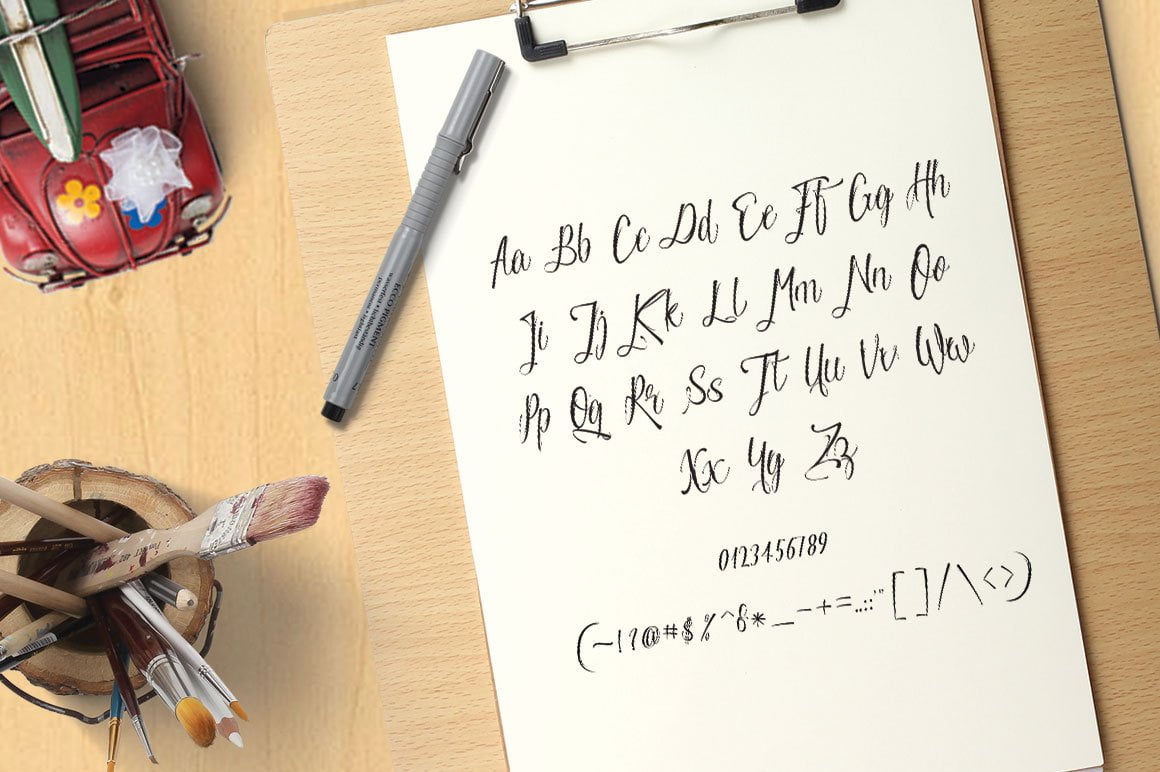 Aa Bb Cc Dd Ee Ff Gg Hh
Ii Jj Kk Ll Mm Nn Oo
Pp Qq Rr Ss Tt Uu Vv Ww
Xx Yy Zz
0123456789
(~!?@#$%^&*_-+=.,:;'"[]/\<>)
ECCO PIGMENT